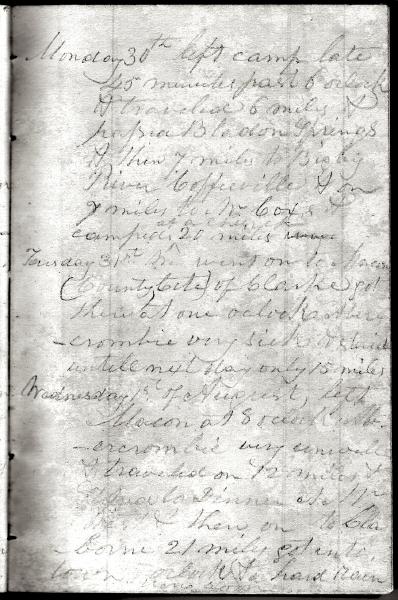 Monday 30th left camp late
45 minutes past 6 oclock
& traveled 6 miles &
passed Bladon Springs
& then 7 miles to Bigby
River Coffieville & on
7 miles to Mr Coxs &
at a church
camped 20 miles
Tuesday 31st we went on to Macon
(County Cite) of Clarke got
there at one oclock Aber
-crombie very sick & staid
untill next day only 15 miles
Wednesday 1st of August, left
Macon at 8 oclock Ab-
-ercrombie very unwell
& traveled on 12 miles &
Dinner at Mr
then on to Cla
borne 21 miles got into
town oclock hard Rain